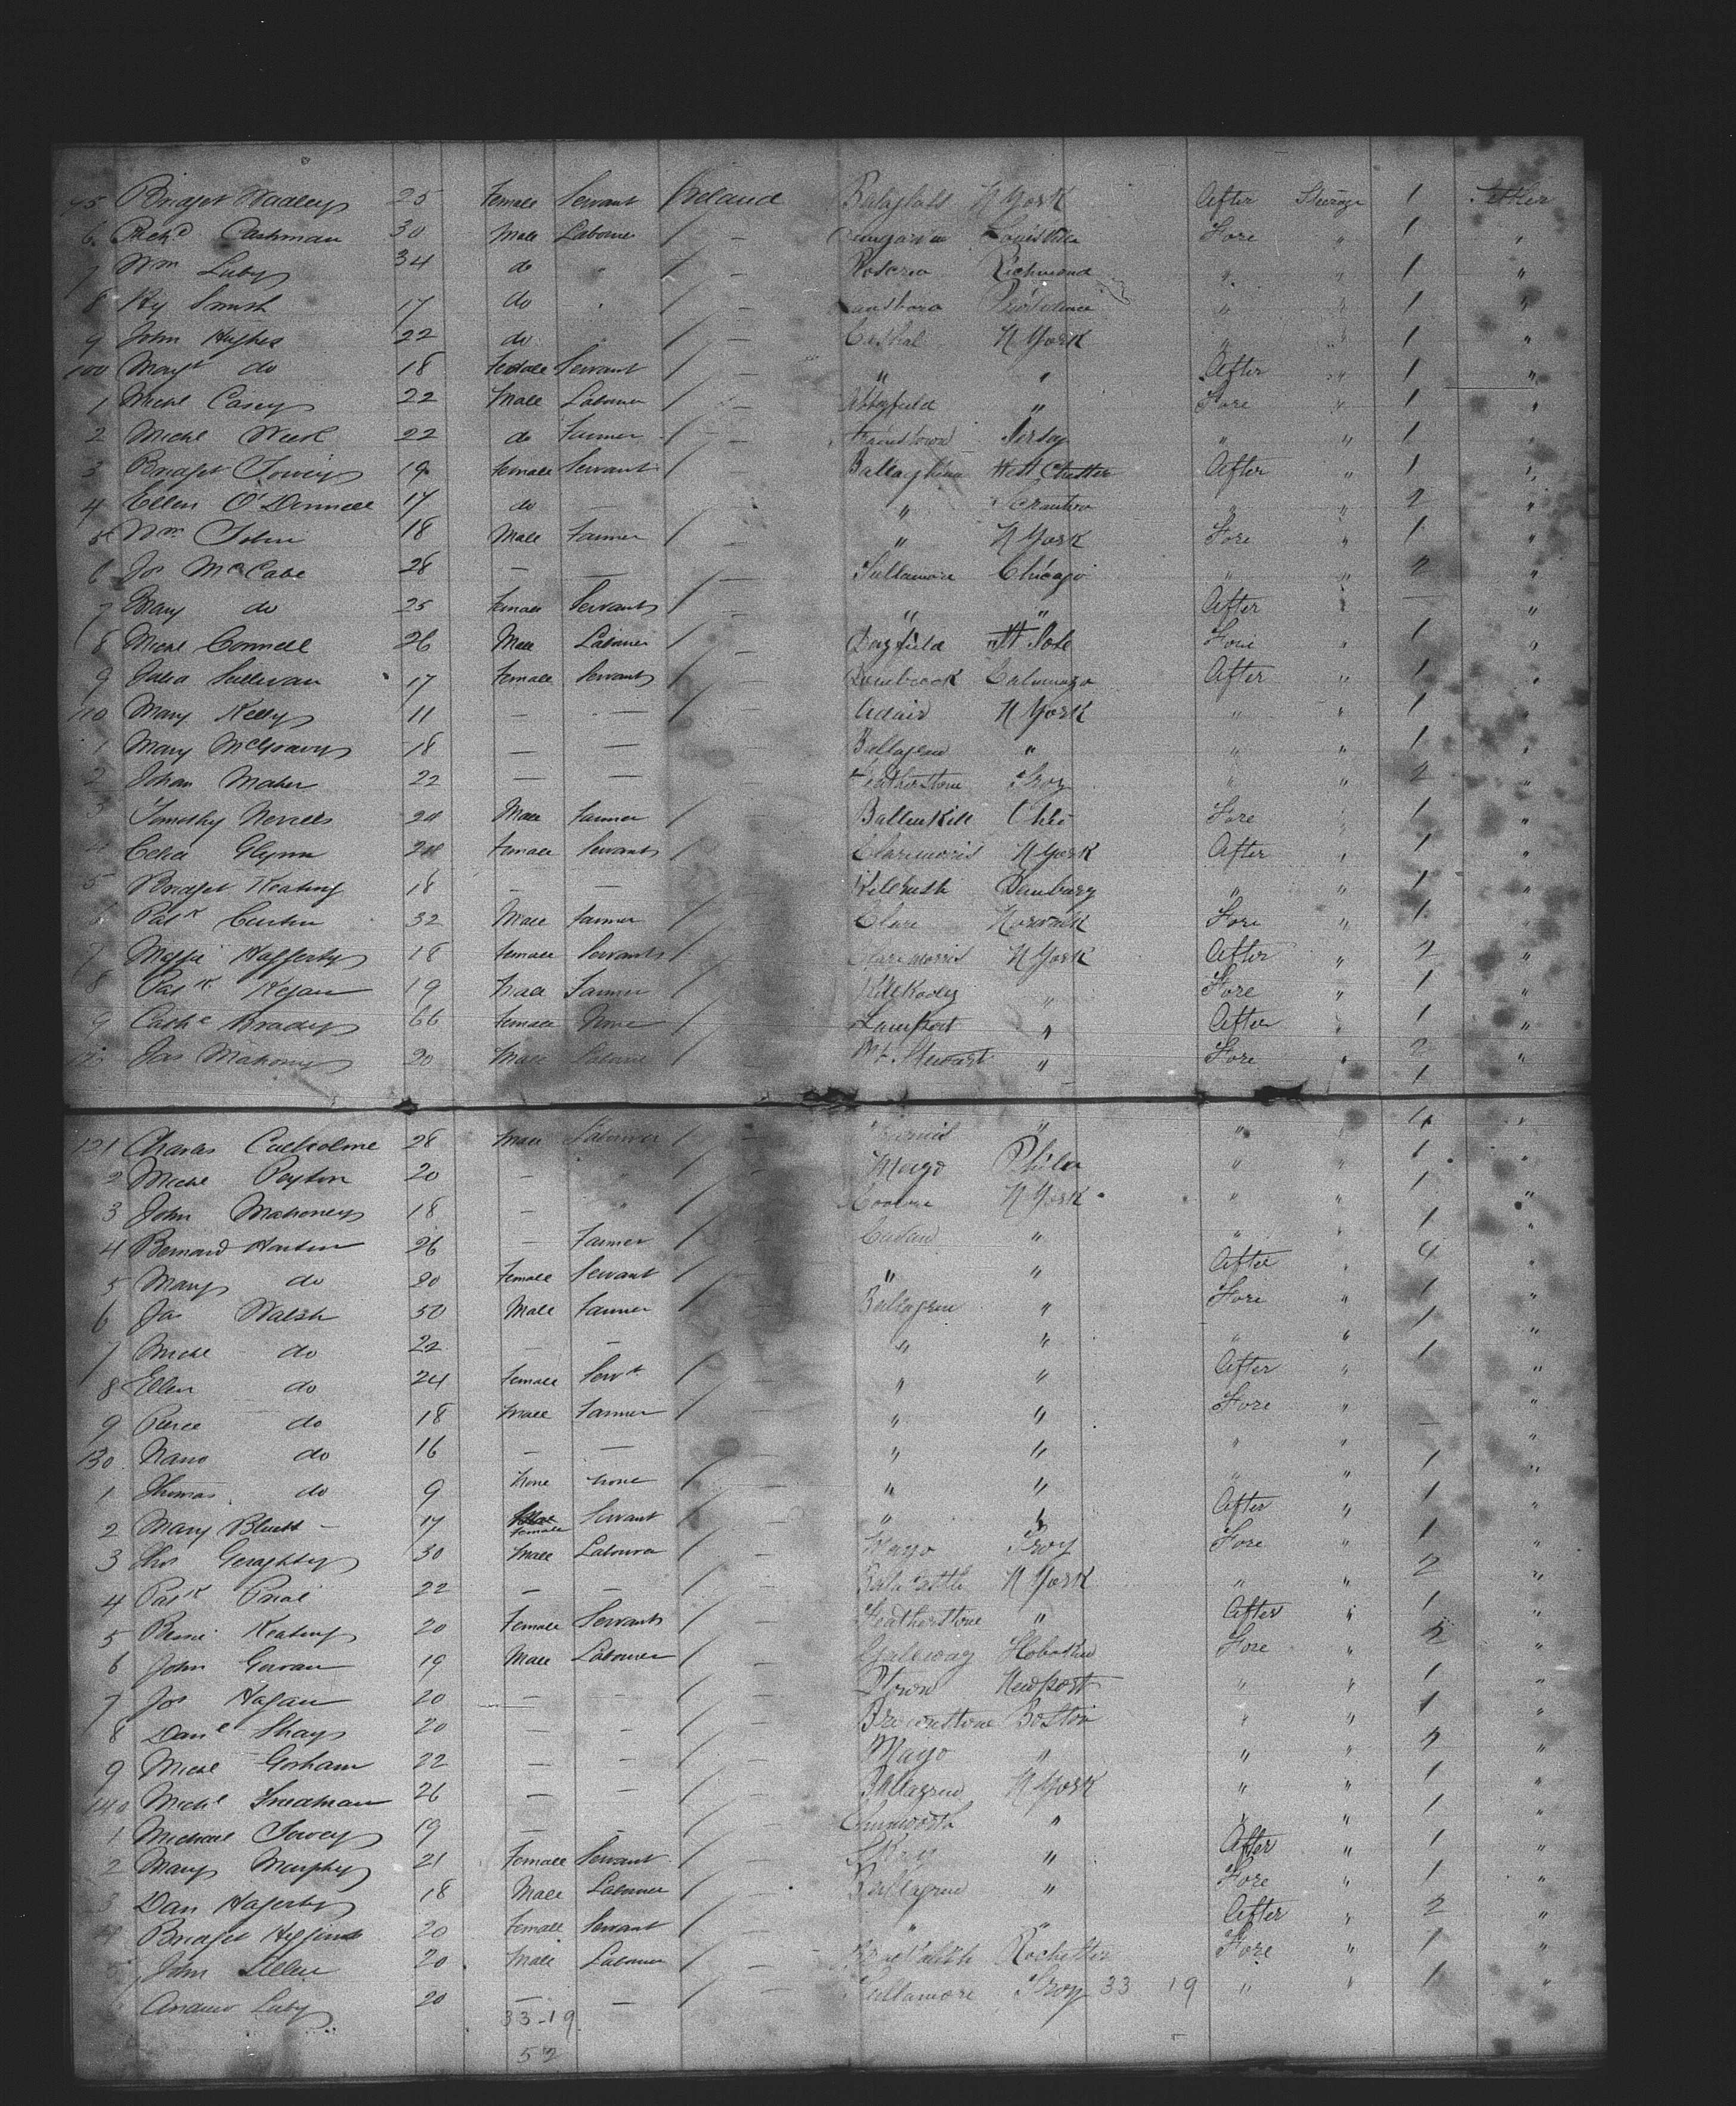 95 Bridget Wadley 25 Female Servant Ireland N York After Steerage 1 Settler
6 Richd Cashman 30 Male Labourer / — Louisville Fore " 1 "
7 Wm Luby 34 do " / — Roscrea Richmond " " 1 "
8 Hy Smith 17 do " / — Providence " " 1 "
9 John Hughes 22 do " / — Cashel N York " " 1 "
100 Margt do 18 Female Servant / — " " After " 1 "
1 Michl Casey 22 Male Labourer / — Abbyfield " Fore " 1 "
2 Michl 22 do Farmer / — Jersey " " 1 "
3 Bridget Towey 19 Female Servant / — West Chester After " 1 "
4 Ellen O'Donnell 17 do — / — " Scranton " " 2 "
5 Wm Tobin 18 Male Farmer / — " N York Fore " 1 "
6 Jos McCabe 28 — — / — Tullamore Chicago " " 2 "
7 Mary do 25 Female Servant / — " " After " — "
8 Michl Connell 26 Male Labourer / — Fore " 1 "
9 Julia Sullivan 17 Female Servant / — After " 1 "
110 Mary Kelly 11 — — / — Adair N York " " 1 "
1 Mary McGreavy 18 — — Ballagrew " " " 1 "
2 Johan Maher 22 — — Featherstone Troy " " 2 "
3 Timothy Nevills 20 Male Farmer / Ohio Fore " 1 "
4 Celia Glynn 20 Female Servant / Claremorris N York After " 1 "
5 Bridget Keating 18 — — Kilrush Danbury " " 1 "
6 Patk Curtin 32 Male Farmer / Clare Norwalk Fore " 1 "
7 Maggie Hafferty 18 Female Servant / Claremorris N York After " 2 "
8 Patk Kegan 19 Male Farmer / — " Fore " 1 "
9 Cathe Brady 66 Female None / — " After " 1 "
120 Jas Mahony 20 Male Labourer / — Mt. Stewart " Fore " 2 "
1
121 Charas 28 Male Labourer / — " " 4 "
2 Michl Peyton 20 — " / — Mayo Phila " " 1 "
3 John Mahoney 18 — " / — N York " " 1 "
4 Bernard 26 — Farmer / — Cavan " " " 1 "
5 Mary do 20 Female Servant / — " " After " 4 "
6 Jas Walsh 50 Male Farmer / — Ballagrew " Fore " 1 "
7 Michl do 22 — — / — " " " " 1 "
8 Ellen do 24 Female Servt / — " " After " 1 "
9 Pierce do 18 Male Farmer / — " " Fore " "
130 Nano do 16 — — / — " " " " — "
1 Thomas do 9 None none / — " " " " 1 "
2 Mary Bluett 17 Female Servant / — " " After " 1 "
3 Thos Geraghty 30 Male Labourer / — Mayo Troy Fore " 1 "
4 Patk Prial 22 — — / — N York " " 2 "
5 Bessie Keating 20 Female Servant / — Featherstone " After " 1 "
6 John Gowan 19 Male Labourer / — Galway Hoboken Fore " 2 "
7 Jos Hagan 20 — — / — Ptown Newport " " 1 "
8 Danl Shay 20 — — / — Brownstone Boston " " 1 "
9 Michl Gorham 22 — — / — Mayo " " " 2 "
140 Michl Freedman 26 — — / — Ballagrew N York " " 1 "
1 Michael Towey 19 — — / — " " " 1 "
2 Mary Murphy 21 Female Servant / — " After " 1 "
3 Dan Hagerty 18 Male Labourer / — Ballagrew " Fore " 1 "
4 Bridget Higgins 20 Female Servant / — " " After " 2 "
5 John 20 Male Labourer / — Rochester Fore " 1 "
6 Andrew Luby 20 — — / — Tullamore Troy 33 19 " " 1 "
33-19
52